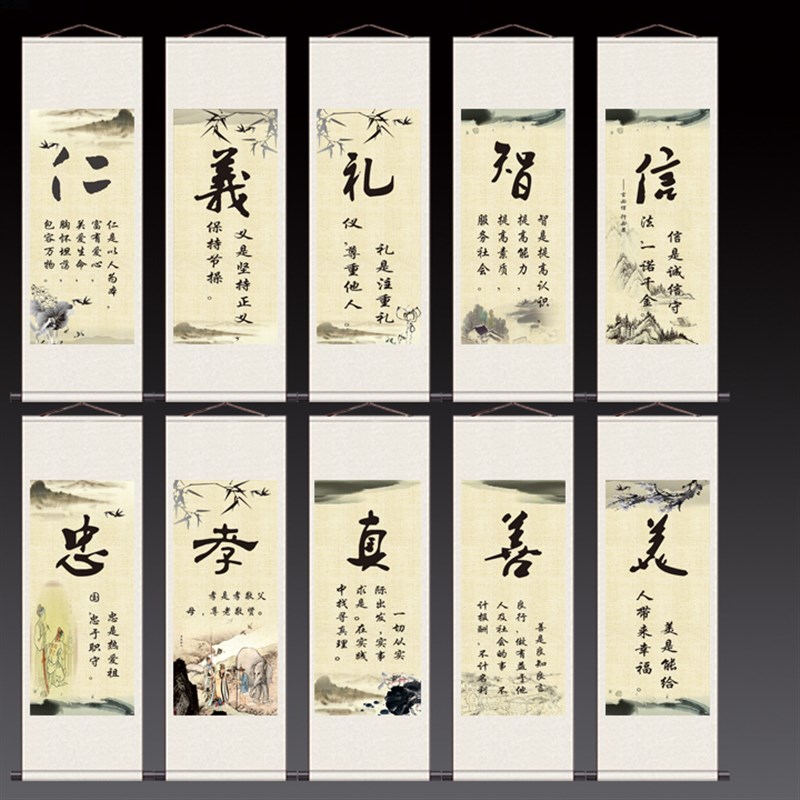 仁
仁是以人为本，
富有爱心，
关爱生命，
胸怀坦荡，
包容万物。
義
义是坚持正义，
保持节操。
礼
礼是注重礼
仪，尊重他人。
智
智是提高认识，
提高能力，
提高素质，
服务社会。
信
信是诚信守
法，一诺千金。
——言必信 行必果
忠
忠是热爱祖
国，忠于职守。
孝
孝是孝敬父
母，尊老敬贤。
真
一切从实
际出发，实事
求是。在实践
中找寻真理。
善
善是良知良言
良行，做有益于他
人及社会的事，不
计报酬，不计名利
美
美是能给
人带来幸福。